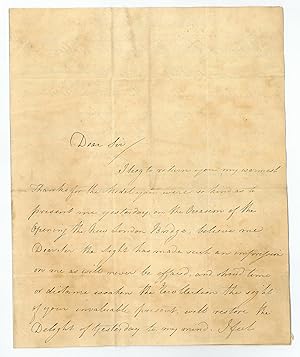 Dear Sir/
I beg to return you my warmest
Thanks for the Medal you were so kind as to
present me yesterday, on the Occasion of the
Opening the New London Bridge, believe me
Dear Sir the Sight has made such an impression
on me as will never be effaced, and should time
or distance weaken the Recollection the sight
of your invaluable present, will restore the
Delight of Yesterday to my mind. I feel